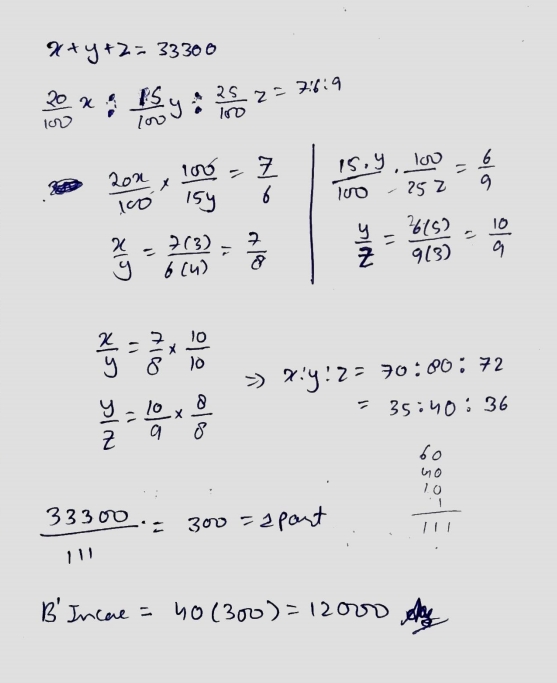 x+y+z = 33300
20/100 x : 15/100 y : 25/100 z = 7:6:9
20x/100 × 100/15y = 7/6
x/y = 7(3)/6(4) = 7/8
15.y/100 . 100/25z = 6/9
y/z = 6(5)/9(3) = 10/9
x/y = 7/8 × 10/10
y/z = 10/9 × 8/8
⇒ x:y:z = 70:80:72
= 35:40:36
60
40
10
1
111
33300/111 = 300 = 1 part
B' Income = 40(300) = 12000